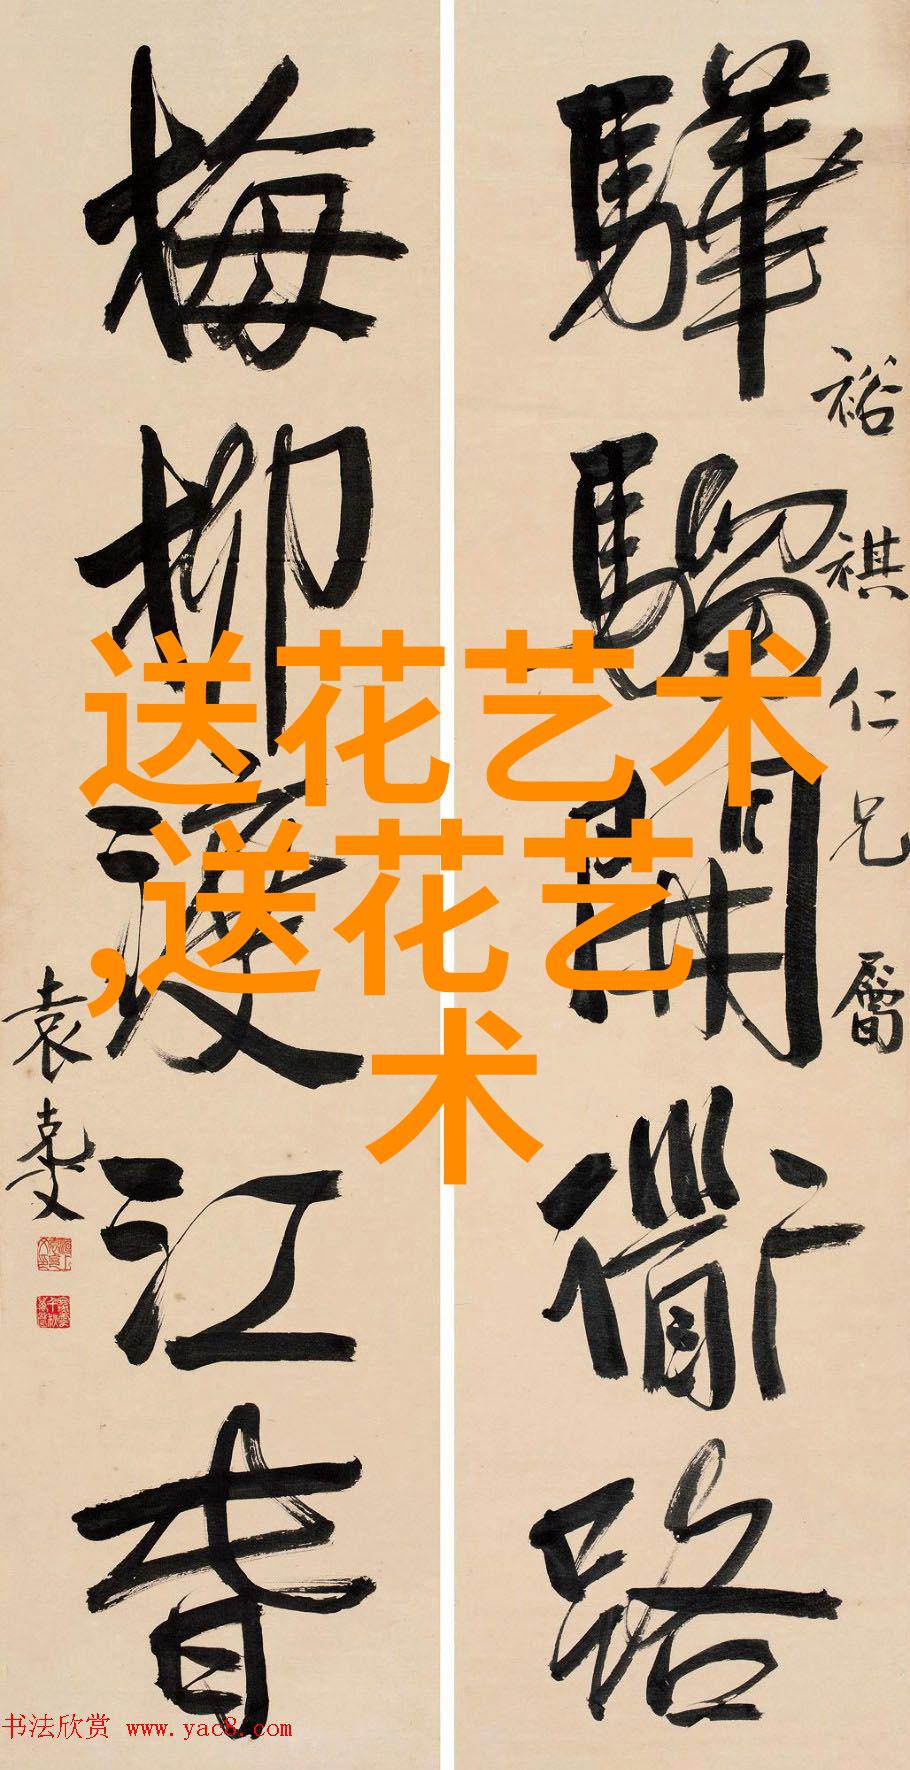 驊騮開衟路
裕祺仁兄屬
梅柳渡江春
袁克文
送花艺术
,送花艺
术
书法欣赏 www.yac8.com